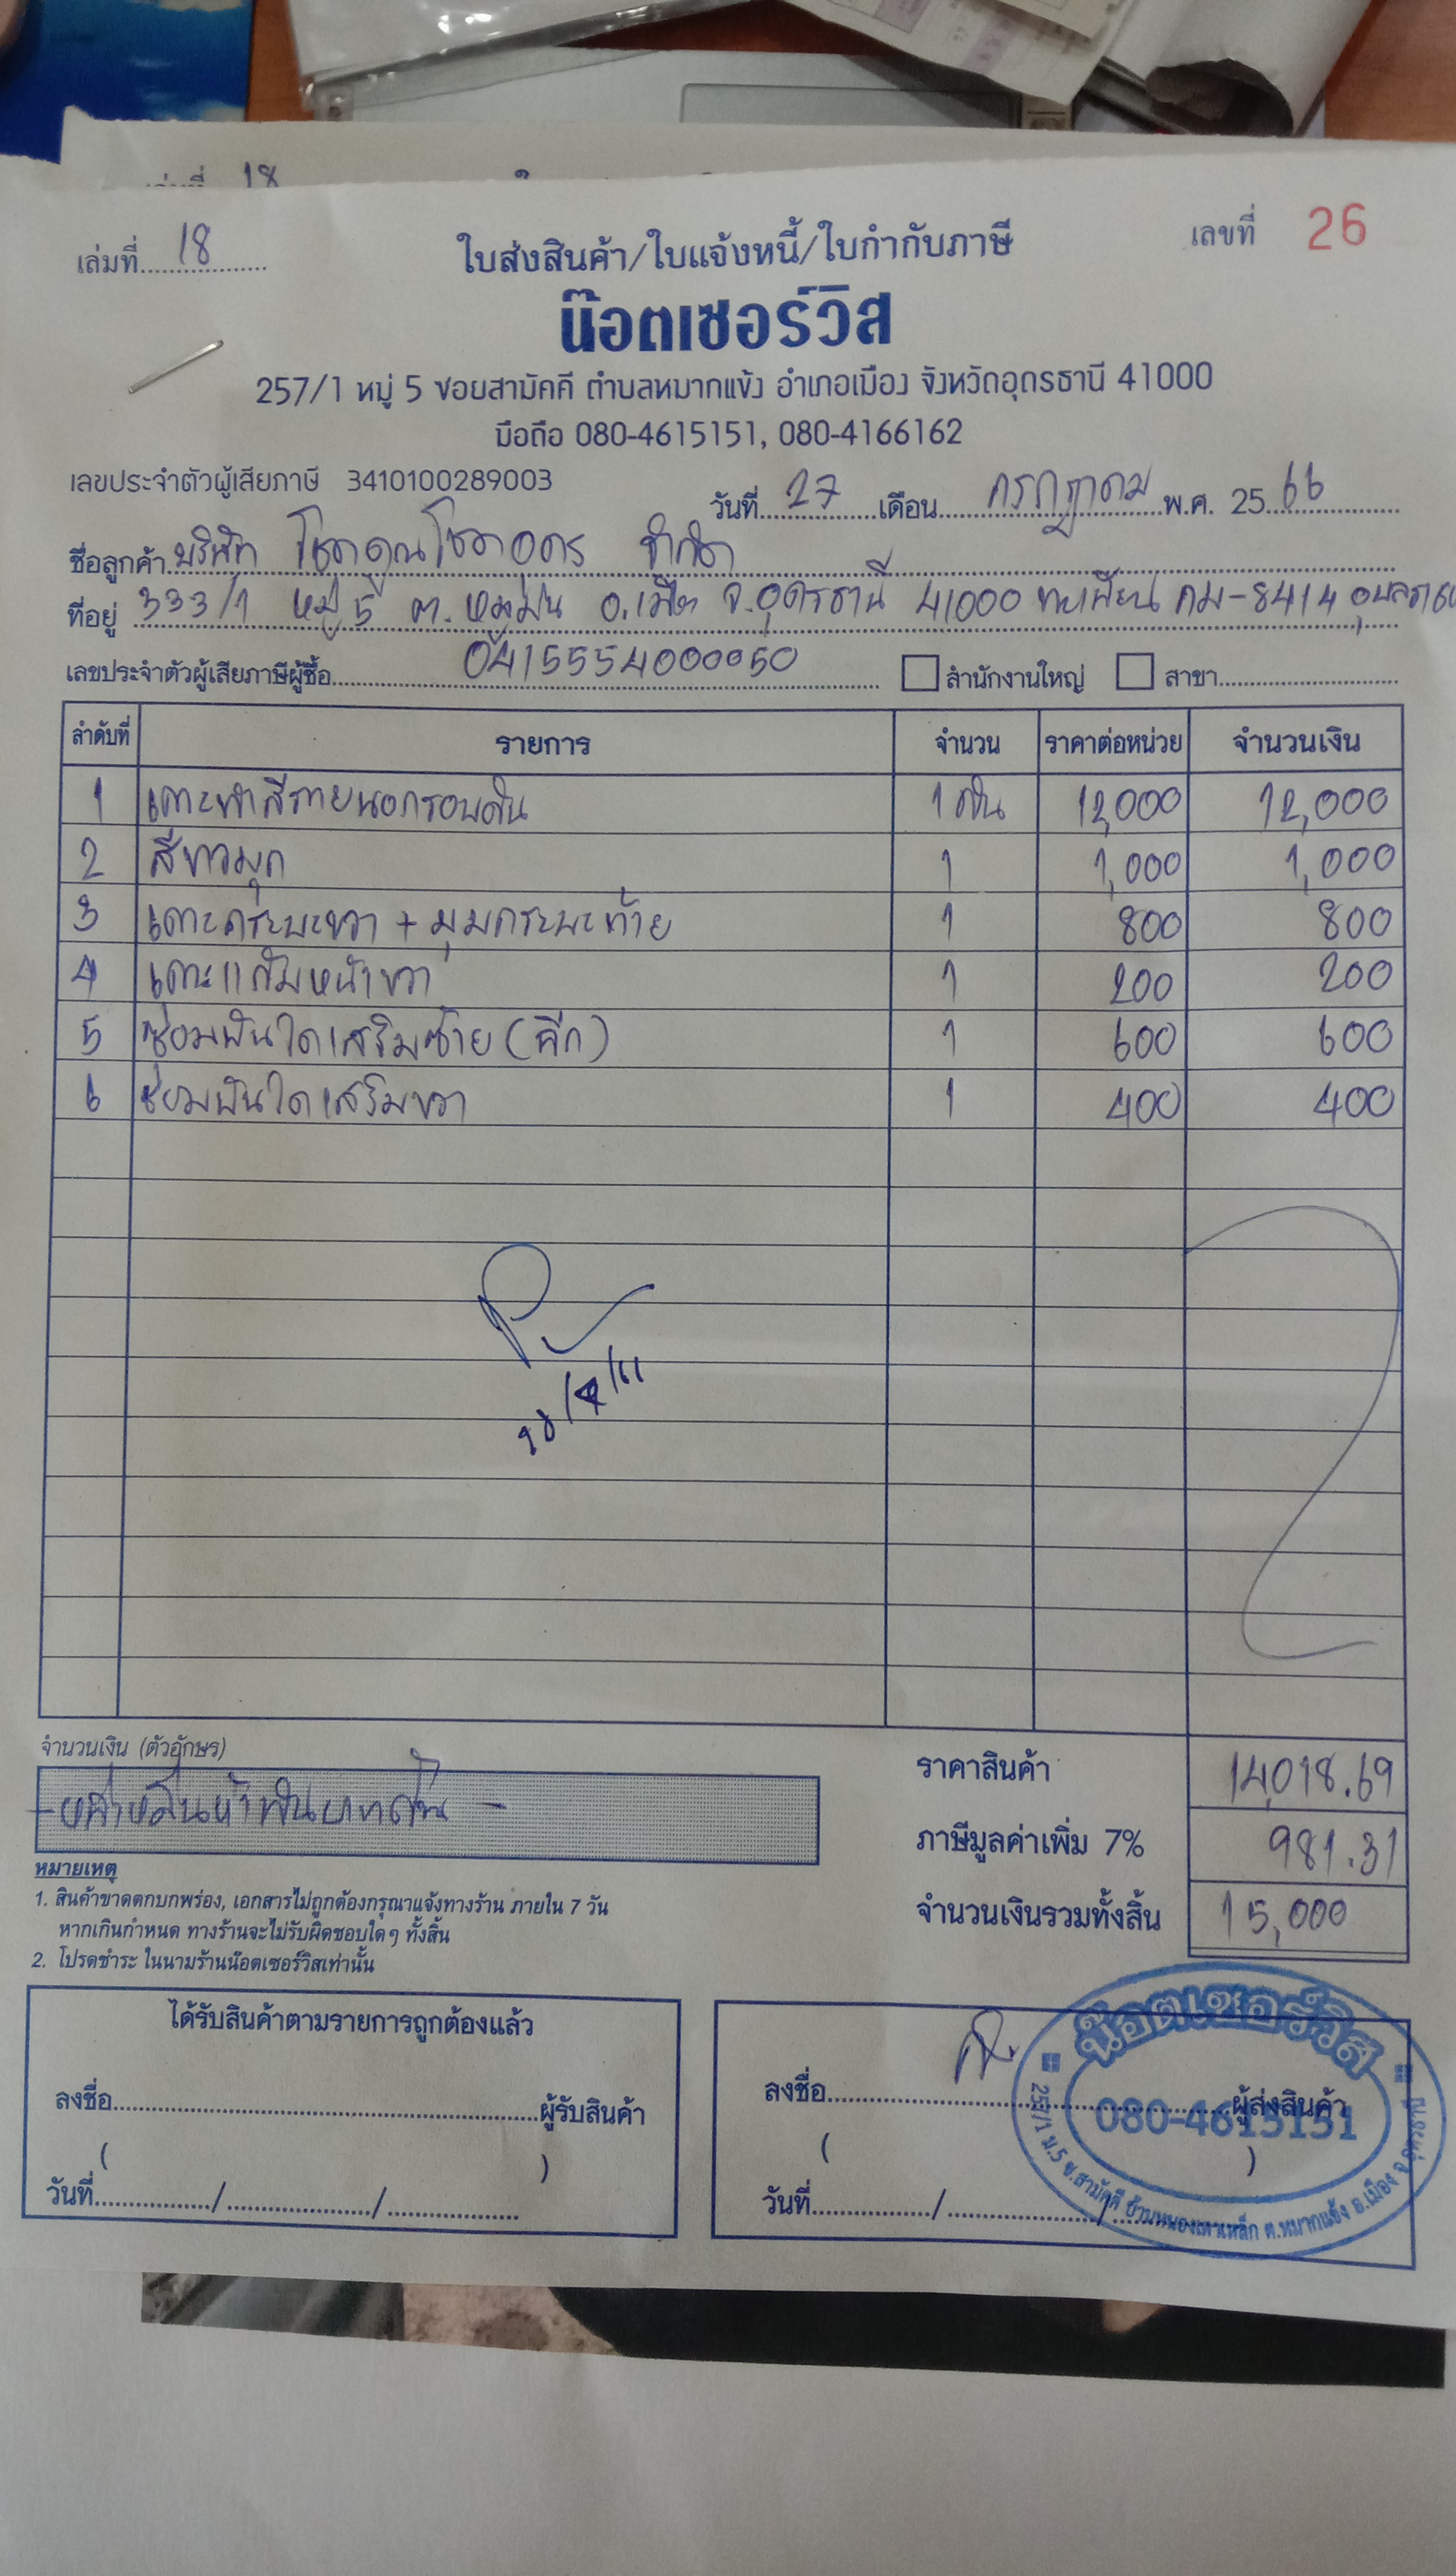 เล่มที่ 18
เล่มที่ 18
ใบส่งสินค้า/ใบแจ้งหนี้/ใบกำกับภาษี
เลขที่ 26
น๊อตเซอร์วิส
257/1 หมู่ 5 ซอยสามัคคี ตำบลหมากแข้ง อำเภอเมือง จังหวัดอุดรธานี 41000
มือถือ 080-4615151, 080-4166162
เลขประจำตัวผู้เสียภาษี 3410100289003
วันที่ 27 เดือน กรกฎาคม พ.ศ. 25 66
ชื่อลูกค้า บริษัท โชคคูณโชคอุดร จำกัด
ที่อยู่ 333/1 หมู่ 5 ต. หมูม่น อ.เมือง จ.อุดรธานี 41000 ทะเบียน กม-8414
เลขประจำตัวผู้เสียภาษีผู้ซื้อ 0415554000050 สำนักงานใหญ่ สาขา
ลำดับที่ รายการ จำนวน ราคาต่อหน่วย จำนวนเงิน
1 เคาะทำสีภายนอกรอบคัน 1 คัน 12,000 12,000
2 สีขาวมุก 1 1,000 1,000
3 เคาะกระบะขวา + มุมกระบะท้าย 1 800 800
4 เคาะแก้มหน้าขวา 1 200 200
5 ซ่อมบันไดเสริมซ้าย (ฉีก) 1 600 600
6 ซ่อมบันไดเสริมขวา 1 400 400
จำนวนเงิน (ตัวอักษร)
- หนึ่งหมื่นห้าพันบาทถ้วน -
ราคาสินค้า 14,018.69
ภาษีมูลค่าเพิ่ม 7% 981.31
จำนวนเงินรวมทั้งสิ้น 15,000
หมายเหตุ
1. สินค้าขาดตกบกพร่อง, เอกสารไม่ถูกต้องกรุณาแจ้งทางร้าน ภายใน 7 วัน
หากเกินกำหนด ทางร้านจะไม่รับผิดชอบใดๆ ทั้งสิ้น
2. โปรดชำระ ในนามร้านน๊อตเซอร์วิสเท่านั้น
ได้รับสินค้าตามรายการถูกต้องแล้ว
ลงชื่อ ผู้รับสินค้า
( )
วันที่ / /
ลงชื่อ ผู้ส่งสินค้า
( )
วันที่ / /
น๊อตเซอร์วิส
080-4615151
257/1 ม.5 ซ.สามัคคี บ้านหนองเตาเหล็ก ต.หมากแข้ง อ.เมือง จ.อุดรธานี